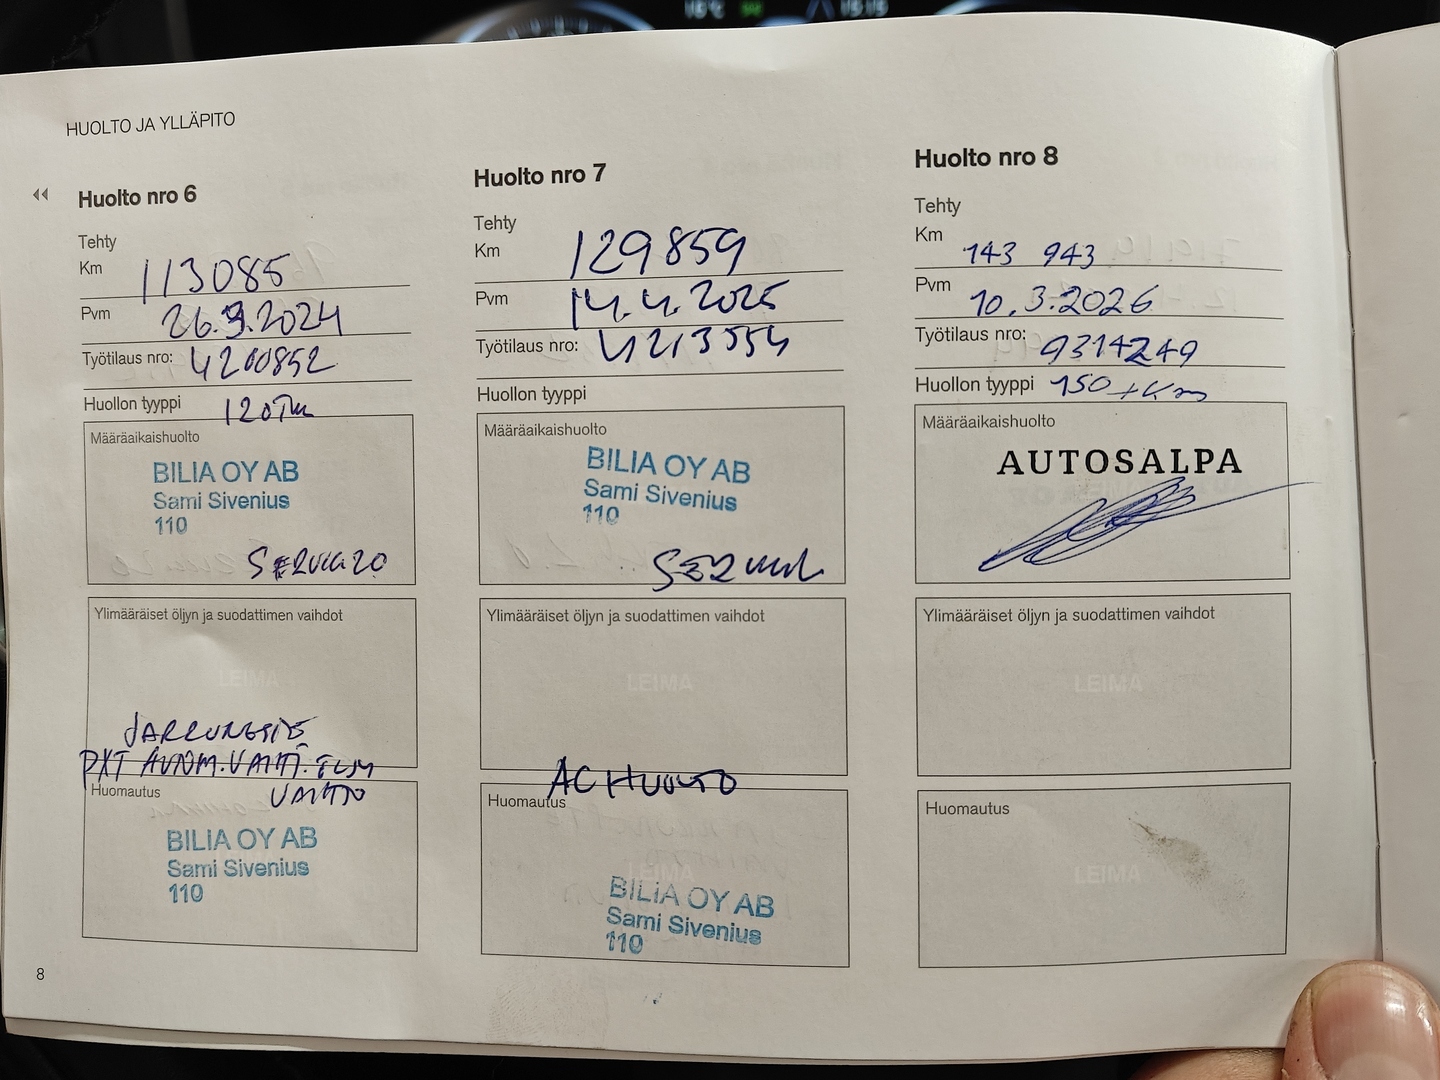 HUOLTO JA YLLÄPITO
Huolto nro 6
Tehty
Km 113085
Pvm 26.9.2024
Työtilaus nro: 4200852
Huollon tyyppi 120Tkm
Määräaikaishuolto
BILIA OY AB
Sami Sivenius
110
SERVICE 2.0
Ylimääräiset öljyn ja suodattimen vaihdot
LEIMA
JARRUNESTE
AUTOM.VAIHT. ÖLJY
VAIHTO
Huomautus
BILIA OY AB
Sami Sivenius
110
8
Huolto nro 7
Tehty
Km 129859
Pvm 14.4.2025
Työtilaus nro: 4213554
Huollon tyyppi
Määräaikaishuolto
BILIA OY AB
Sami Sivenius
110
Ylimääräiset öljyn ja suodattimen vaihdot
LEIMA
AC HUOLTO
Huomautus
LEIMA
BILIA OY AB
Sami Sivenius
110
Huolto nro 8
Tehty
Km 143 943
Pvm 10.3.2026
Työtilaus nro: 9314249
Huollon tyyppi 150 tkm
Määräaikaishuolto
AUTOSALPA
Ylimääräiset öljyn ja suodattimen vaihdot
LEIMA
Huomautus
LEIMA